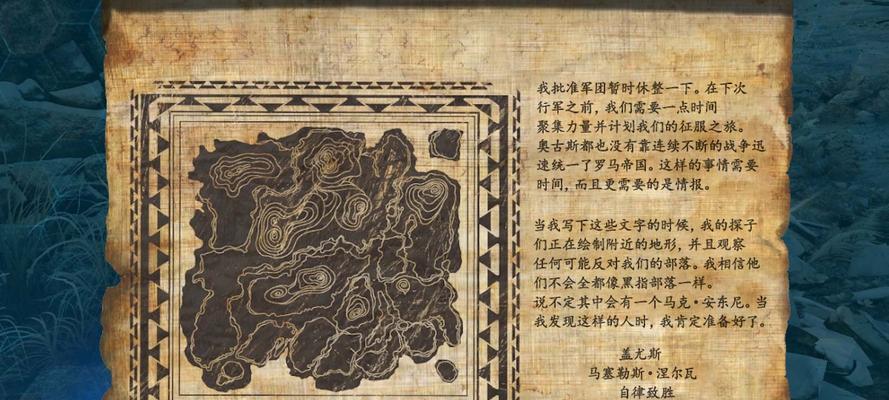 我批准军团暂时休整一下。在下次
行军之前，我们需要一点时间
聚集力量并计划我们的征服之旅。
奥古斯都也没有靠连续不断的战争迅
速统一了罗马帝国。这样的事情需要
时间，而且更需要的是情报。
当我写下这些文字的时候，我的探子
们正在绘制附近的地形，并且观察
任何可能反对我们的部落。我相信他
们不会全都像黑指部落一样。
说不定其中会有一个马克·安东尼。当
我发现这样的人时，我肯定准备好了。
盖尤斯
马塞勒斯·涅尔瓦
自律致胜